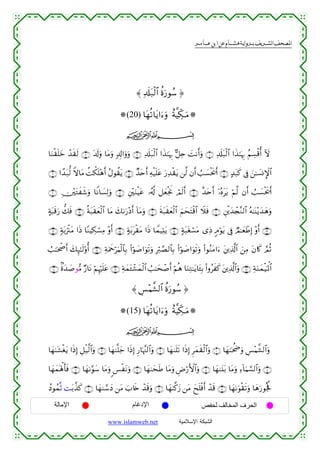 المصحف الشريف برواية هشام عن ابن عامر
﴿ سُورَةُ ٱلْبَلَدِ ﴾
* مَكِّيَّةٌ وَءَايَاتُهَا (20) *
لَآ أُقْسِمُ بِهَـٰذَا ٱلْبَلَدِ ۝ وَأَنتَ حِلٌّۢ بِهَـٰذَا ٱلْبَلَدِ ۝ وَوَالِدٍ وَمَا وَلَدَ ۝ لَقَدْ خَلَقْنَا
ٱلْإِنسَـٰنَ فِى كَبَدٍ ۝ أَيَحْسَبُ أَن لَّن يَقْدِرَ عَلَيْهِ أَحَدٌ ۝ يَقُولُ أَهْلَكْتُ مَالًا لُّبَدًا ۝
أَيَحْسَبُ أَن لَّمْ يَرَهُۥٓ أَحَدٌ ۝ أَلَمْ نَجْعَل لَّهُۥ عَيْنَيْنِ ۝ وَلِسَانًا وَشَفَتَيْنِ ۝
وَهَدَيْنَـٰهُ ٱلنَّجْدَيْنِ ۝ فَلَا ٱقْتَحَمَ ٱلْعَقَبَةَ ۝ وَمَآ أَدْرَىٰكَ مَا ٱلْعَقَبَةُ ۝ فَكُّ رَقَبَةٍ
۝ أَوْ إِطْعَـٰمٌ فِى يَوْمٍ ذِى مَسْغَبَةٍ ۝ يَتِيمًا ذَا مَقْرَبَةٍ ۝ أَوْ مِسْكِينًا ذَا مَتْرَبَةٍ
۝ ثُمَّ كَانَ مِنَ ٱلَّذِينَ ءَامَنُوا۟ وَتَوَاصَوْا۟ بِٱلصَّبْرِ وَتَوَاصَوْا۟ بِٱلْمَرْحَمَةِ ۝ أُو۟لَـٰٓئِكَ أَصْحَـٰبُ
ٱلْمَيْمَنَةِ ۝ وَٱلَّذِينَ كَفَرُوا۟ بِـَٔايَـٰتِنَا هُمْ أَصْحَـٰبُ ٱلْمَشْـَٔمَةِ ۝ عَلَيْهِمْ نَارٌ مُّوصَدَةٌۢ ۝
﴿ سُورَةُ ٱلشَّمْسِ ﴾
* مَكِّيَّةٌ وَءَايَاتُهَا (15) *
وَٱلشَّمْسِ وَضُحَىٰهَا ۝ وَٱلْقَمَرِ إِذَا تَلَىٰهَا ۝ وَٱلنَّهَارِ إِذَا جَلَّىٰهَا ۝ وَٱلَّيْلِ إِذَا يَغْشَىٰهَا
۝ وَٱلسَّمَآءِ وَمَا بَنَىٰهَا ۝ وَٱلْأَرْضِ وَمَا طَحَىٰهَا ۝ وَنَفْسٍ وَمَا سَوَّىٰهَا ۝ فَأَلْهَمَهَا
فُجُورَهَا وَتَقْوَىٰهَا ۝ قَدْ أَفْلَحَ مَن زَكَّىٰهَا ۝ وَقَدْ خَابَ مَن دَسَّىٰهَا ۝ كَذَّبَت ثَّمُودُ
الحرف المخالف لحفص الإدغام الإمالة
الشبكة الإسلامية www.islamweb.net